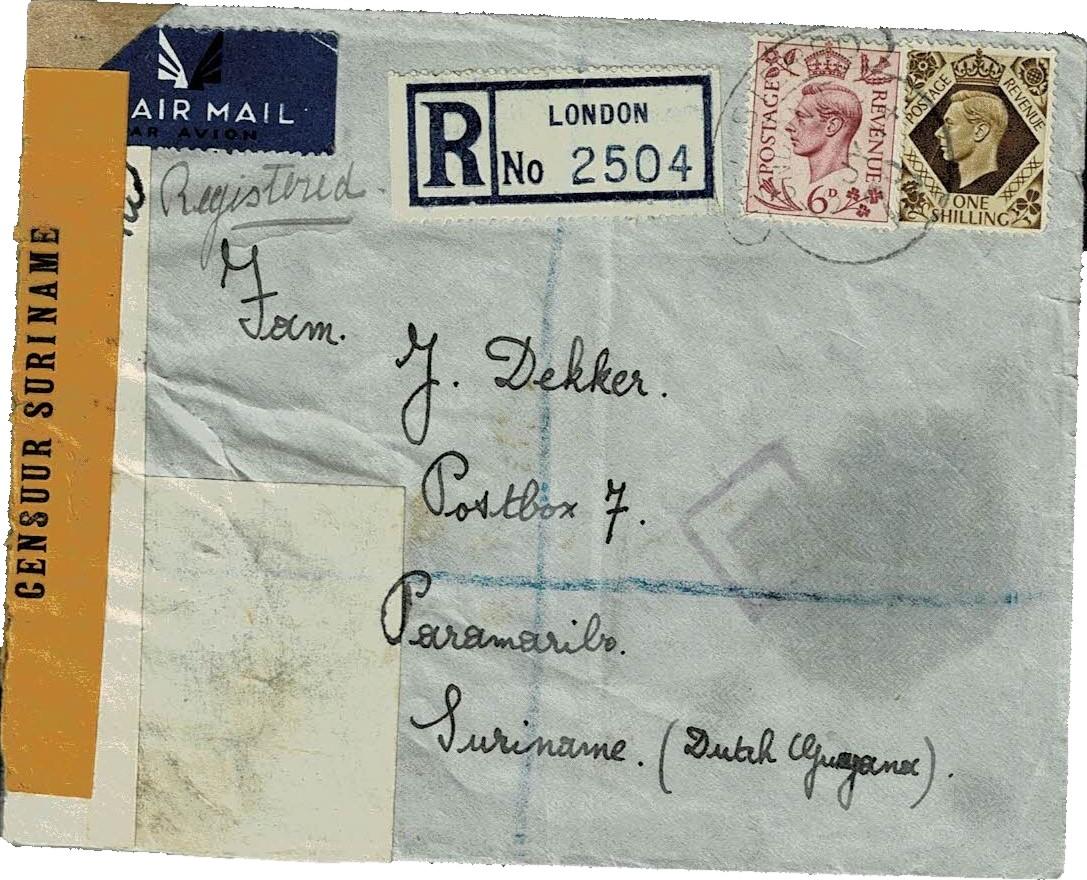 AIR MAIL
PAR AVION
Registered
R
LONDON
No 2504
POSTAGE
REVENUE
6D
POSTAGE
REVENUE
ONE
SHILLING
CENSUUR SURINAME
Fam.
J. Dekker.
Postbox 7.
Paramaribo.
Suriname. (Dutch Guyana).